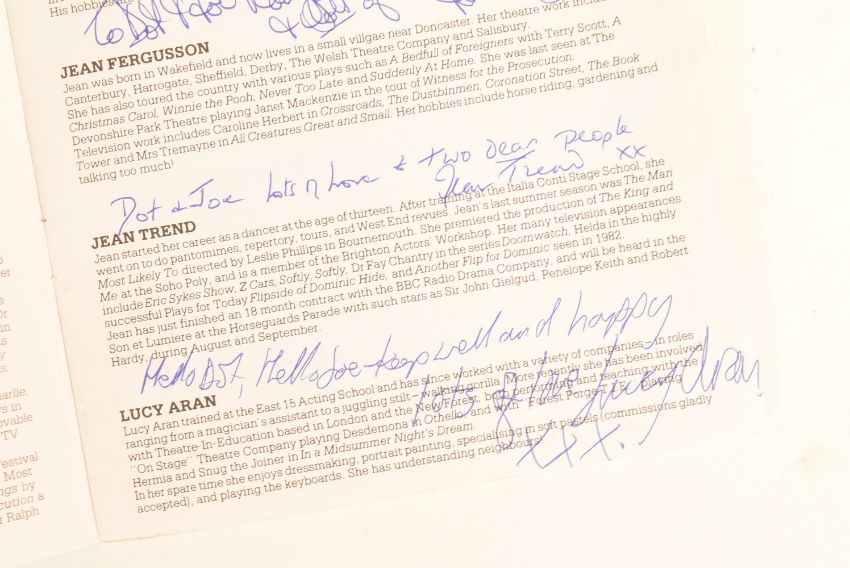 His hobbies are
To Dot & Joe
JEAN FERGUSSON
Jean was born in Wakefield and now lives in a small villgae near Doncaster. Her theatre work
Canterbury, Harrogate, Sheffield, Derby, The Welsh Theatre Company and Salisbury.
She has also toured the country with various plays such as A Bedful of Foreigners with Terry Scott, A
Christmas Carol, Winnie the Pooh, Never Too Late and Suddenly At Home. She was last seen at The
Devonshire Park Theatre playing Janet Mackenzie in the tour of Witness for the Prosecution.
Television work includes Caroline Herbert in Crossroads, The Dustbinmen, Coronation Street, The Book
Tower and Mrs Tremayne in All Creatures Great and Small. Her hobbies include horse riding, gardening and
talking too much!
Dot & Joe Lots of Love to two dear people
Jean Trend xx
JEAN TREND
Jean started her career as a dancer at the age of thirteen. After training at the Italia Conti Stage School, she
went on to do pantomimes, repertory, tours, and West End revues. Jean's last summer season was The Man
Most Likely To directed by Leslie Phillips in Bournemouth. She premiered the production of The King and
Me at the Soho Poly, and is a member of the Brighton Actors' Workshop. Her many television appearances
include Eric Sykes Show, Z Cars, Softly, Softly, Dr Fay Chantry in the series Doomwatch, Helda in the highly
successful Plays for Today Flipside of Dominic Hide, and Another Flip for Dominic seen in 1982.
Jean has just finished an 18 month contract with the BBC Radio Drama Company, and will be heard in the
Son et Lumiere at the Horseguards Parade with such stars as Sir John Gielgud, Penelope Keith and Robert
Hardy, during August and September.
Hello Dot, Hello Joe - keep well and happy
lots of love Lucy Aran
xxx.
LUCY ARAN
Lucy Aran trained at the East 15 Acting School and has since worked with a variety of companies – in roles
ranging from a magician's assistant to a juggling stilt – walking gorilla. More recently she has been involved
with Theatre-In-Education based in London and the New Forest, both performing and teaching with the
"On Stage" Theatre Company playing Desdemona in Othello, and with "Forest Forge T.I.E." playing
Hermia and Snug the Joiner in In a Midsummer Night's Dream.
In her spare time she enjoys dressmaking, portrait painting, specialising in soft pastels (commissions gladly
accepted), and playing the keyboards. She has understanding neighbours!
er
Dr
in
s
y
s,
harlie,
rs in
ovable
TV
estival
Most
ngs by
cution a
r Ralph